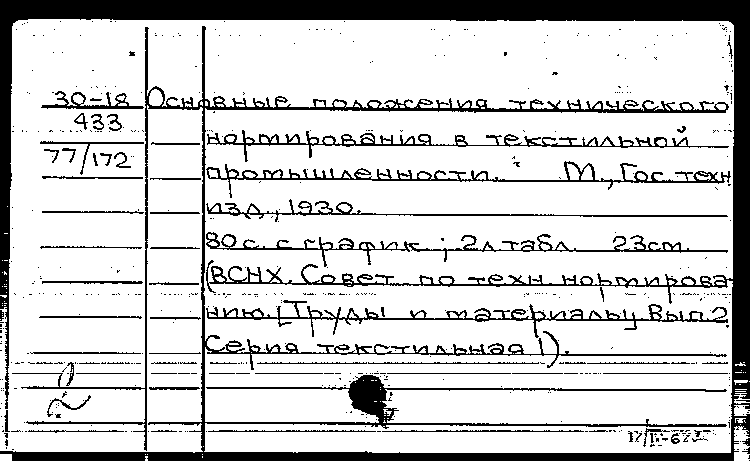 30-18 Основные положения технического
433
нормирования в текстильной
77/172
промышленности. М., Гос. техн
изд., 1930.
80 с. с график.; 2 л табл. 23 см.
(ВСНХ. Совет по техн. нормирова-
нию. [Труды и материалы Вып. 2
Серия текстильная 1).